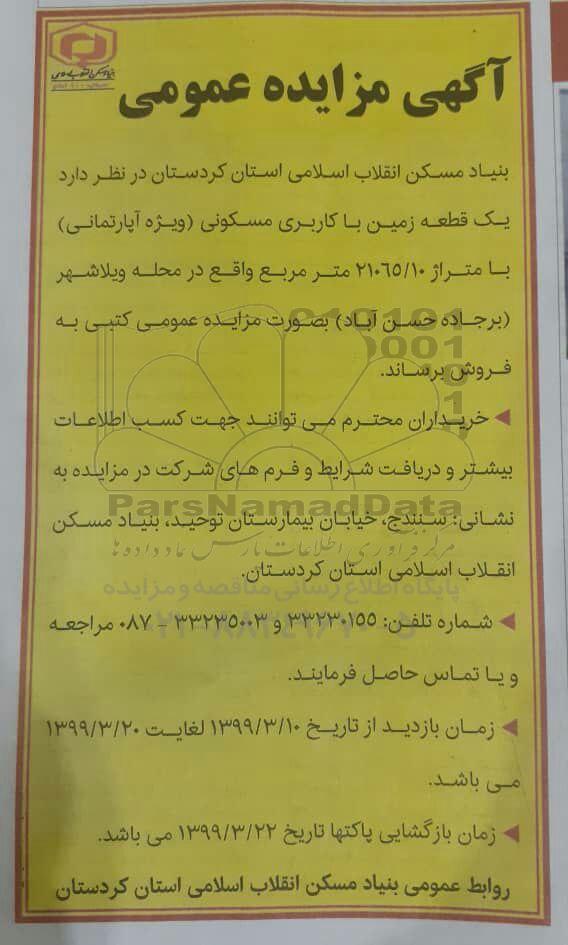 بنیاد مسکن انقلاب اسلامی
آگهی مزایده عمومی
بنیاد مسکن انقلاب اسلامی استان کردستان در نظر دارد
یک قطعه زمین با کاربری مسکونی (ویژه آپارتمانی)
با متراژ ۲۱۰۶۵/۱۰ متر مربع واقع در محله ویلاشهر
(برجاده حسن آباد) بصورت مزایده عمومی کتبی به
فروش برساند.
خریداران محترم می توانند جهت کسب اطلاعات
بیشتر و دریافت شرایط و فرم های شرکت در مزایده به
ParsNamadData
نشانی: سنندج، خیابان بیمارستان توحید، بنیاد مسکن
مرکز فرآوری اطلاعات پارس نماد داده ها
انقلاب اسلامی استان کردستان.
پایگاه اطلاع رسانی مناقصه و مزایده
شماره تلفن: ۳۳۲۳۰۱۵۵ و ۳۳۲۳۵۰۰۳ - ۰۸۷ مراجعه
و یا تماس حاصل فرمایند.
زمان بازدید از تاریخ ۱۳۹۹/۳/۱۰ لغایت ۱۳۹۹/۳/۲۰
می باشد.
زمان بازگشایی پاکتها تاریخ ۱۳۹۹/۳/۲۲ می باشد.
روابط عمومی بنیاد مسکن انقلاب اسلامی استان کردستان